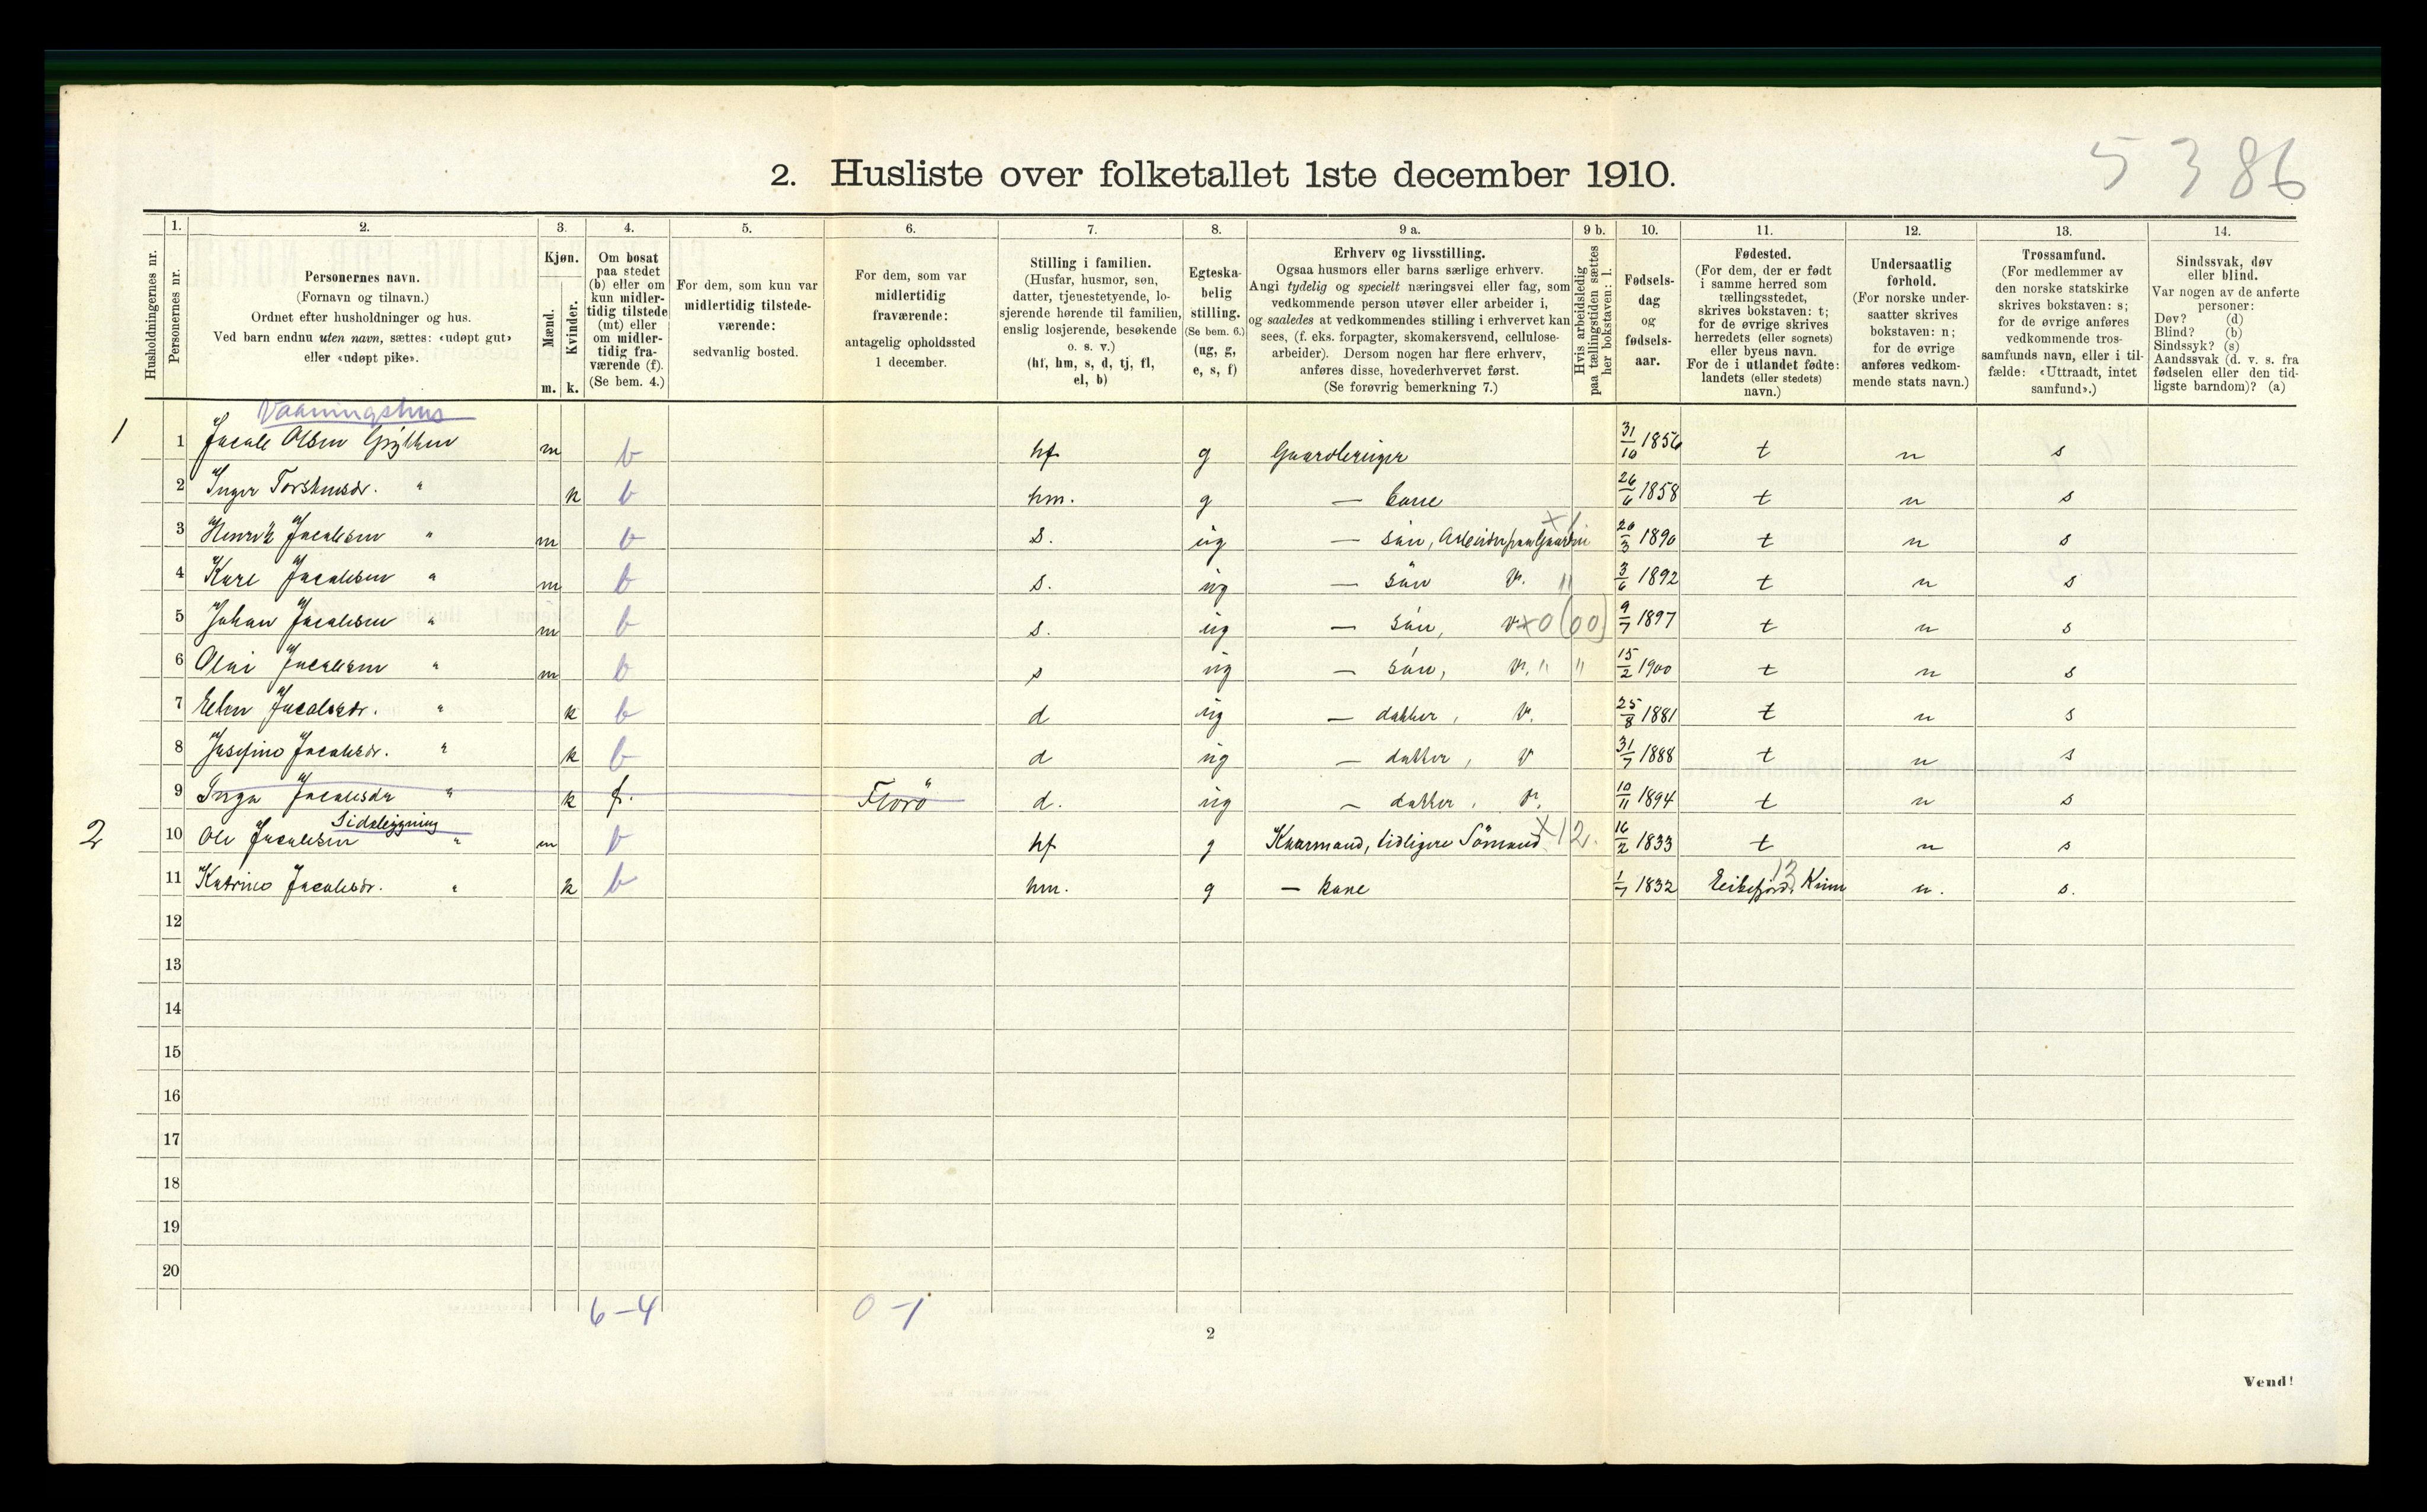 5 3 86
2. Husliste over folketallet 1ste december 1910.
Husholdningernes nr.
1.
Personernes nr.
2.
Personernes navn.
(Fornavn og tilnavn.)
Ordnet efter husholdninger og hus.
Ved barn endnu uten navn, sættes: «udøpt gut»
eller «udøpt pike».
3.
Kjøn.
Mænd.
Kvinder.
m. k.
4.
Om bosat
paa stedet
(b) eller om
kun midler-
tidig tilstede
(mt) eller
om midler-
tidig fra-
værende (f).
(Se bem. 4.)
5.
For dem, som kun var
midlertidig tilstede-
værende:
sedvanlig bosted.
6.
For dem, som var
midlertidig
fraværende:
antagelig opholdssted
1 december.
7.
Stilling i familien.
(Husfar, husmor, søn,
datter, tjenestetyende, lo-
sjerende hørende til familien,
enslig losjerende, besøkende
o. s. v.)
(hf, hm, s, d, tj, fl,
el, b)
8.
Egteska-
belig
stilling.
(Se bem. 6.)
(ug, g,
e, s, f)
9 a.
Erhverv og livsstilling.
Ogsaa husmors eller barns særlige erhverv.
Angi tydelig og specielt næringsvei eller fag, som
vedkommende person utøver eller arbeider i,
og saaledes at vedkommendes stilling i erhvervet kan
sees, (f. eks. forpagter, skomakersvend, cellulose-
arbeider). Dersom nogen har flere erhverv,
anføres disse, hovederhvervet først.
(Se forøvrig bemerkning 7.)
9 b.
Hvis arbeidsledig
paa tællingstiden sættes
her bokstaven: l.
10.
Fødsels-
dag
og
fødsels-
aar.
11.
Fødested.
(For dem, der er født
i samme herred som
tællingsstedet,
skrives bokstaven: t;
for de øvrige skrives
herredets (eller sognets)
eller byens navn.
For de i utlandet fødte:
landets (eller stedets)
navn.)
12.
Undersaatlig
forhold.
(For norske under-
saatter skrives
bokstaven: n;
for de øvrige
anføres vedkom-
mende stats navn.)
13.
Trossamfund.
(For medlemmer av
den norske statskirke
skrives bokstaven: s;
for de øvrige anføres
vedkommende tros-
samfunds navn, eller i til-
fælde: «Uttraadt, intet
samfund».)
14.
Sindssvak, døv
eller blind.
Var nogen av de anførte
personer:
Døv? (d)
Blind? (b)
Sindssyk? (s)
Aandssvak (d. v. s. fra
fødselen eller den tid-
ligste barndom)? (a)
Vaaningshus
1 1 Jacob Olsen m b hf g Gaardbruger 31/10 1856 t n s
2 Inger Torstensdr. " k b hm. g — kone 26/6 1858 t n s
3 Henrik Jacobsen " m b s. ug — sön, Arbeider paa Gaarden 20/3 1890 t n s
4 Kare Jacobsen " m b s. ug — sön " 3/6 1892 t n s
5 Johan Jacobsen " m b s. ug — sön, x0(00) 9/7 1897 t n s
6 Olai Jacobsen " m b s ug — sön, " " 15/2 1900 t n s
7 Elen Jacobsdr. " k b d ug — datter, 25/8 1881 t n s
8 Josefine Jacobsdr. " k b d ug — datter, 31/7 1888 t n s
9 Inga Jacobsdr " k f. Florö d. ug — datter, 10/11 1894 t n s
Sidebygning
2 10 Ole Jacobsen " m b hf g Kaarmand, tidligere Sömand x12. 16/2 1833 t n s
11 Katrine Jacobsdr. " k b hm. g — kone 1/7 1832 Eikefjord, Kinn 13 n. s.
12
13
14
15
16
17
18
19
20
6–4 0–1
2
Vend!